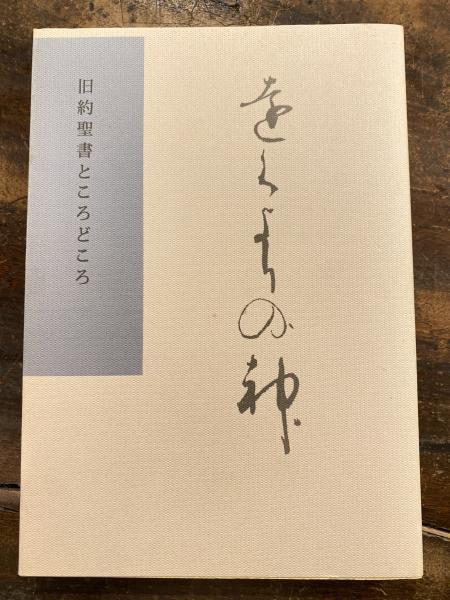 遠くよりの神
旧約聖書ところどころ